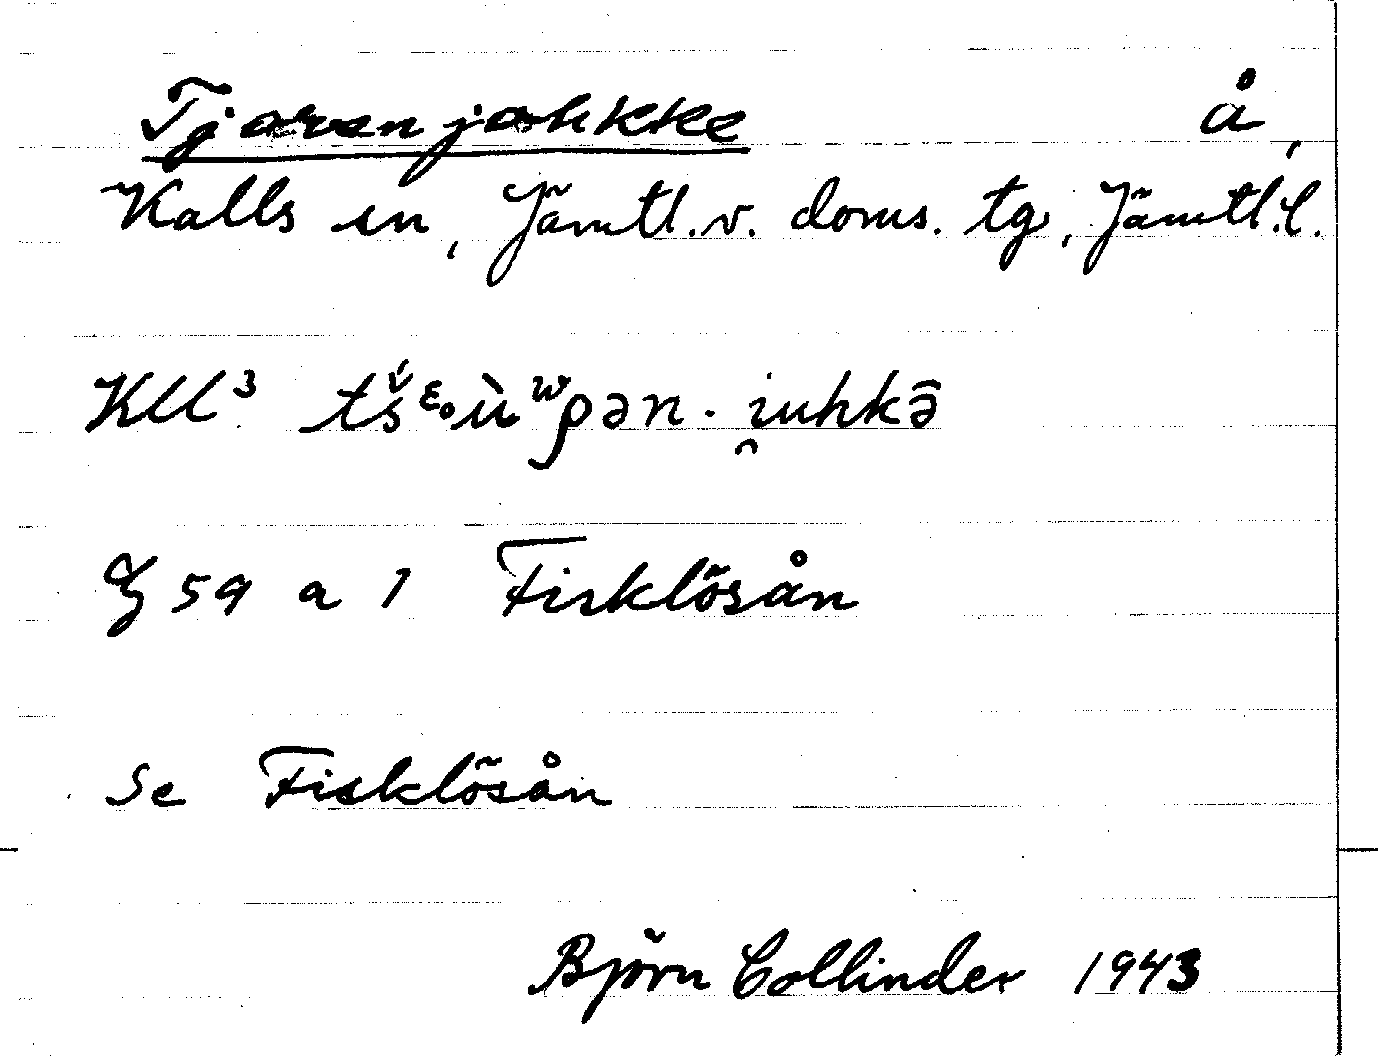 Tjarvanjohkke å
Kalls sn, Jämtl.v. doms. tg, Jämtl.l.
Kll³ tšᵋₒùʷρən-i̯uhkə̄
ZJ 59 a 1 Fisklösån
Se Fisklösån
Björn Collinder 1943